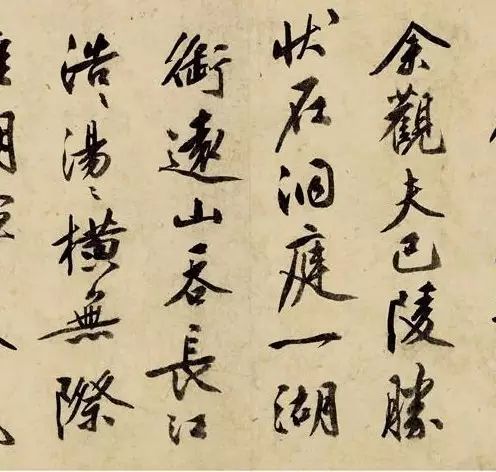 余觀夫巴陵勝
状在洞庭一湖
銜遠山吞長江
浩〻湯〻橫無際